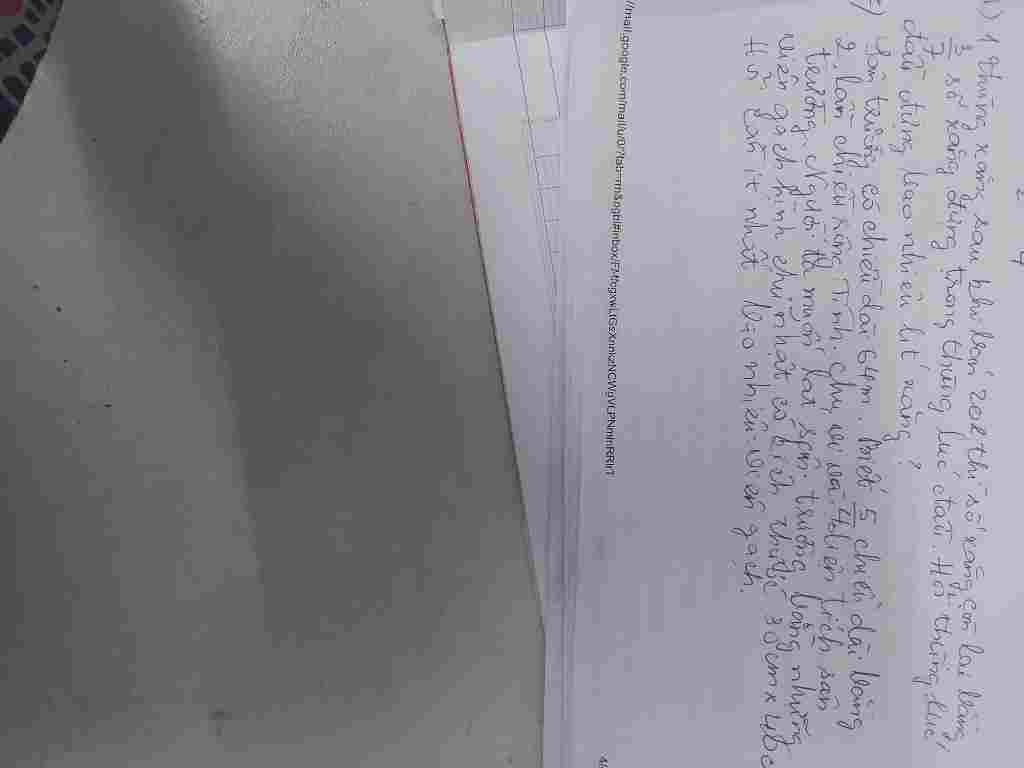 1 thùng xăng sau khi bán 2 thì số xăng còn lại bằng
3/7 số xăng đựng trong thùng lúc đầu. Hỏi thùng lúc
đầu đựng bao nhiêu lít xăng?
Sân trường có chiều dài 64m. biết 5/4 chiều dài bằng
2 lần chiều rộng. Tính chu vi và diện tích sân
trường. Người ta muốn lát sân trường bằng những
viên gạch hình chữ nhật có kích thước 30cm x 4
Hỏi cần ít nhất bao nhiêu viên gạch.
46